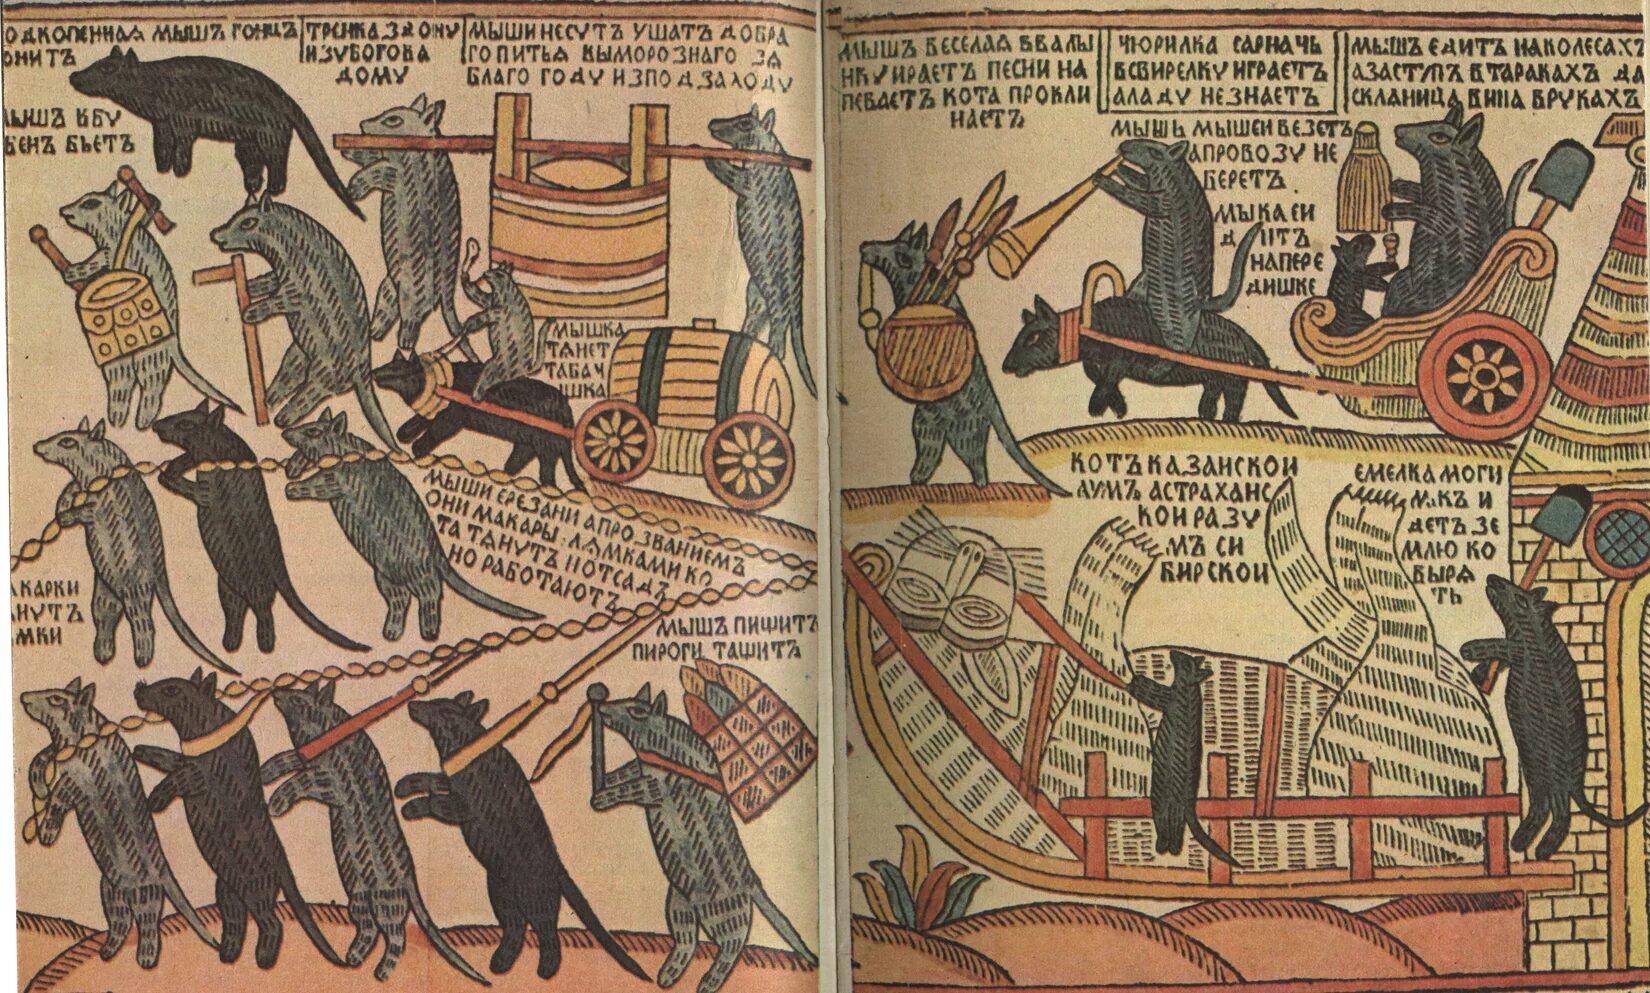 ОДКОПЕННАЯ МЫШЪ ГОНЕЦЪ
ОНИТЪ
ТРЕНКА З ДОНУ
ИЗУБОГОВА
ДОМУ
МЫШИ НЕСУТЪ УШАТЪ ДОБРА
ГО ПИТЬЯ ВЫМОРОЗНАГО ЗА
БЛАГО ГОДУ ИЗПОД ЗАЛОДУ
МЫШЪ ВБУ
БЕНЪ БЬЕТЪ
МЫШКА
ТЯНЕТ
ТАБАЧ
ИШКА
МЫШИ ЕРЕЗАНИ АПРОЗВАНИЕМЪ
ОНИ МАКАРЫ ЛЯМКАМИ КО
ТА ТЯНУТЪ ИОТСАДЪ
НО РАБОТАЮТЪ
КАРКИ
НУТЪ
МКИ
МЫШЪ ПИЩИТЪ
ПИРОГИ ТАЩИТЪ
МЫШЪ ВЕСЕЛАЯ ВВАЛЫ
НКУ ИРАЕТЪ ПЕСНИ НА
ПЕВАЕТЪ КОТА ПРОКЛИ
НАЕТЪ
ЧЮРИЛКА САРНАЧЬ
ВСВИРЕЛКУ ИГРАЕТЪ
АЛАДУ НЕЗНАЕТЪ
МЫШЪ ЕДИТЪ НАКОЛЕСАХЪ
СКЛАНИЦА ВИНА ВРУКАХЪ
МЫШЬ МЫШЕИ ВЕЗЕТЪ
АПРОВОЗУ НЕ
БЕРЕТЪ
СИ
ДИТЪ
НАПЕРЕ
ДИШКЕ
КОТЪ КАЗАНСКОИ
АУМЪ АСТРАХАНС
КОИ РАЗУ
МЪ СИ
БИРСКОИ
ЕМЕЛКА МОГИ
ЛЯКЪ И
ДЕТЪ ЗЕ
МЛЮ КО
ВЫРЯ
ТЬ